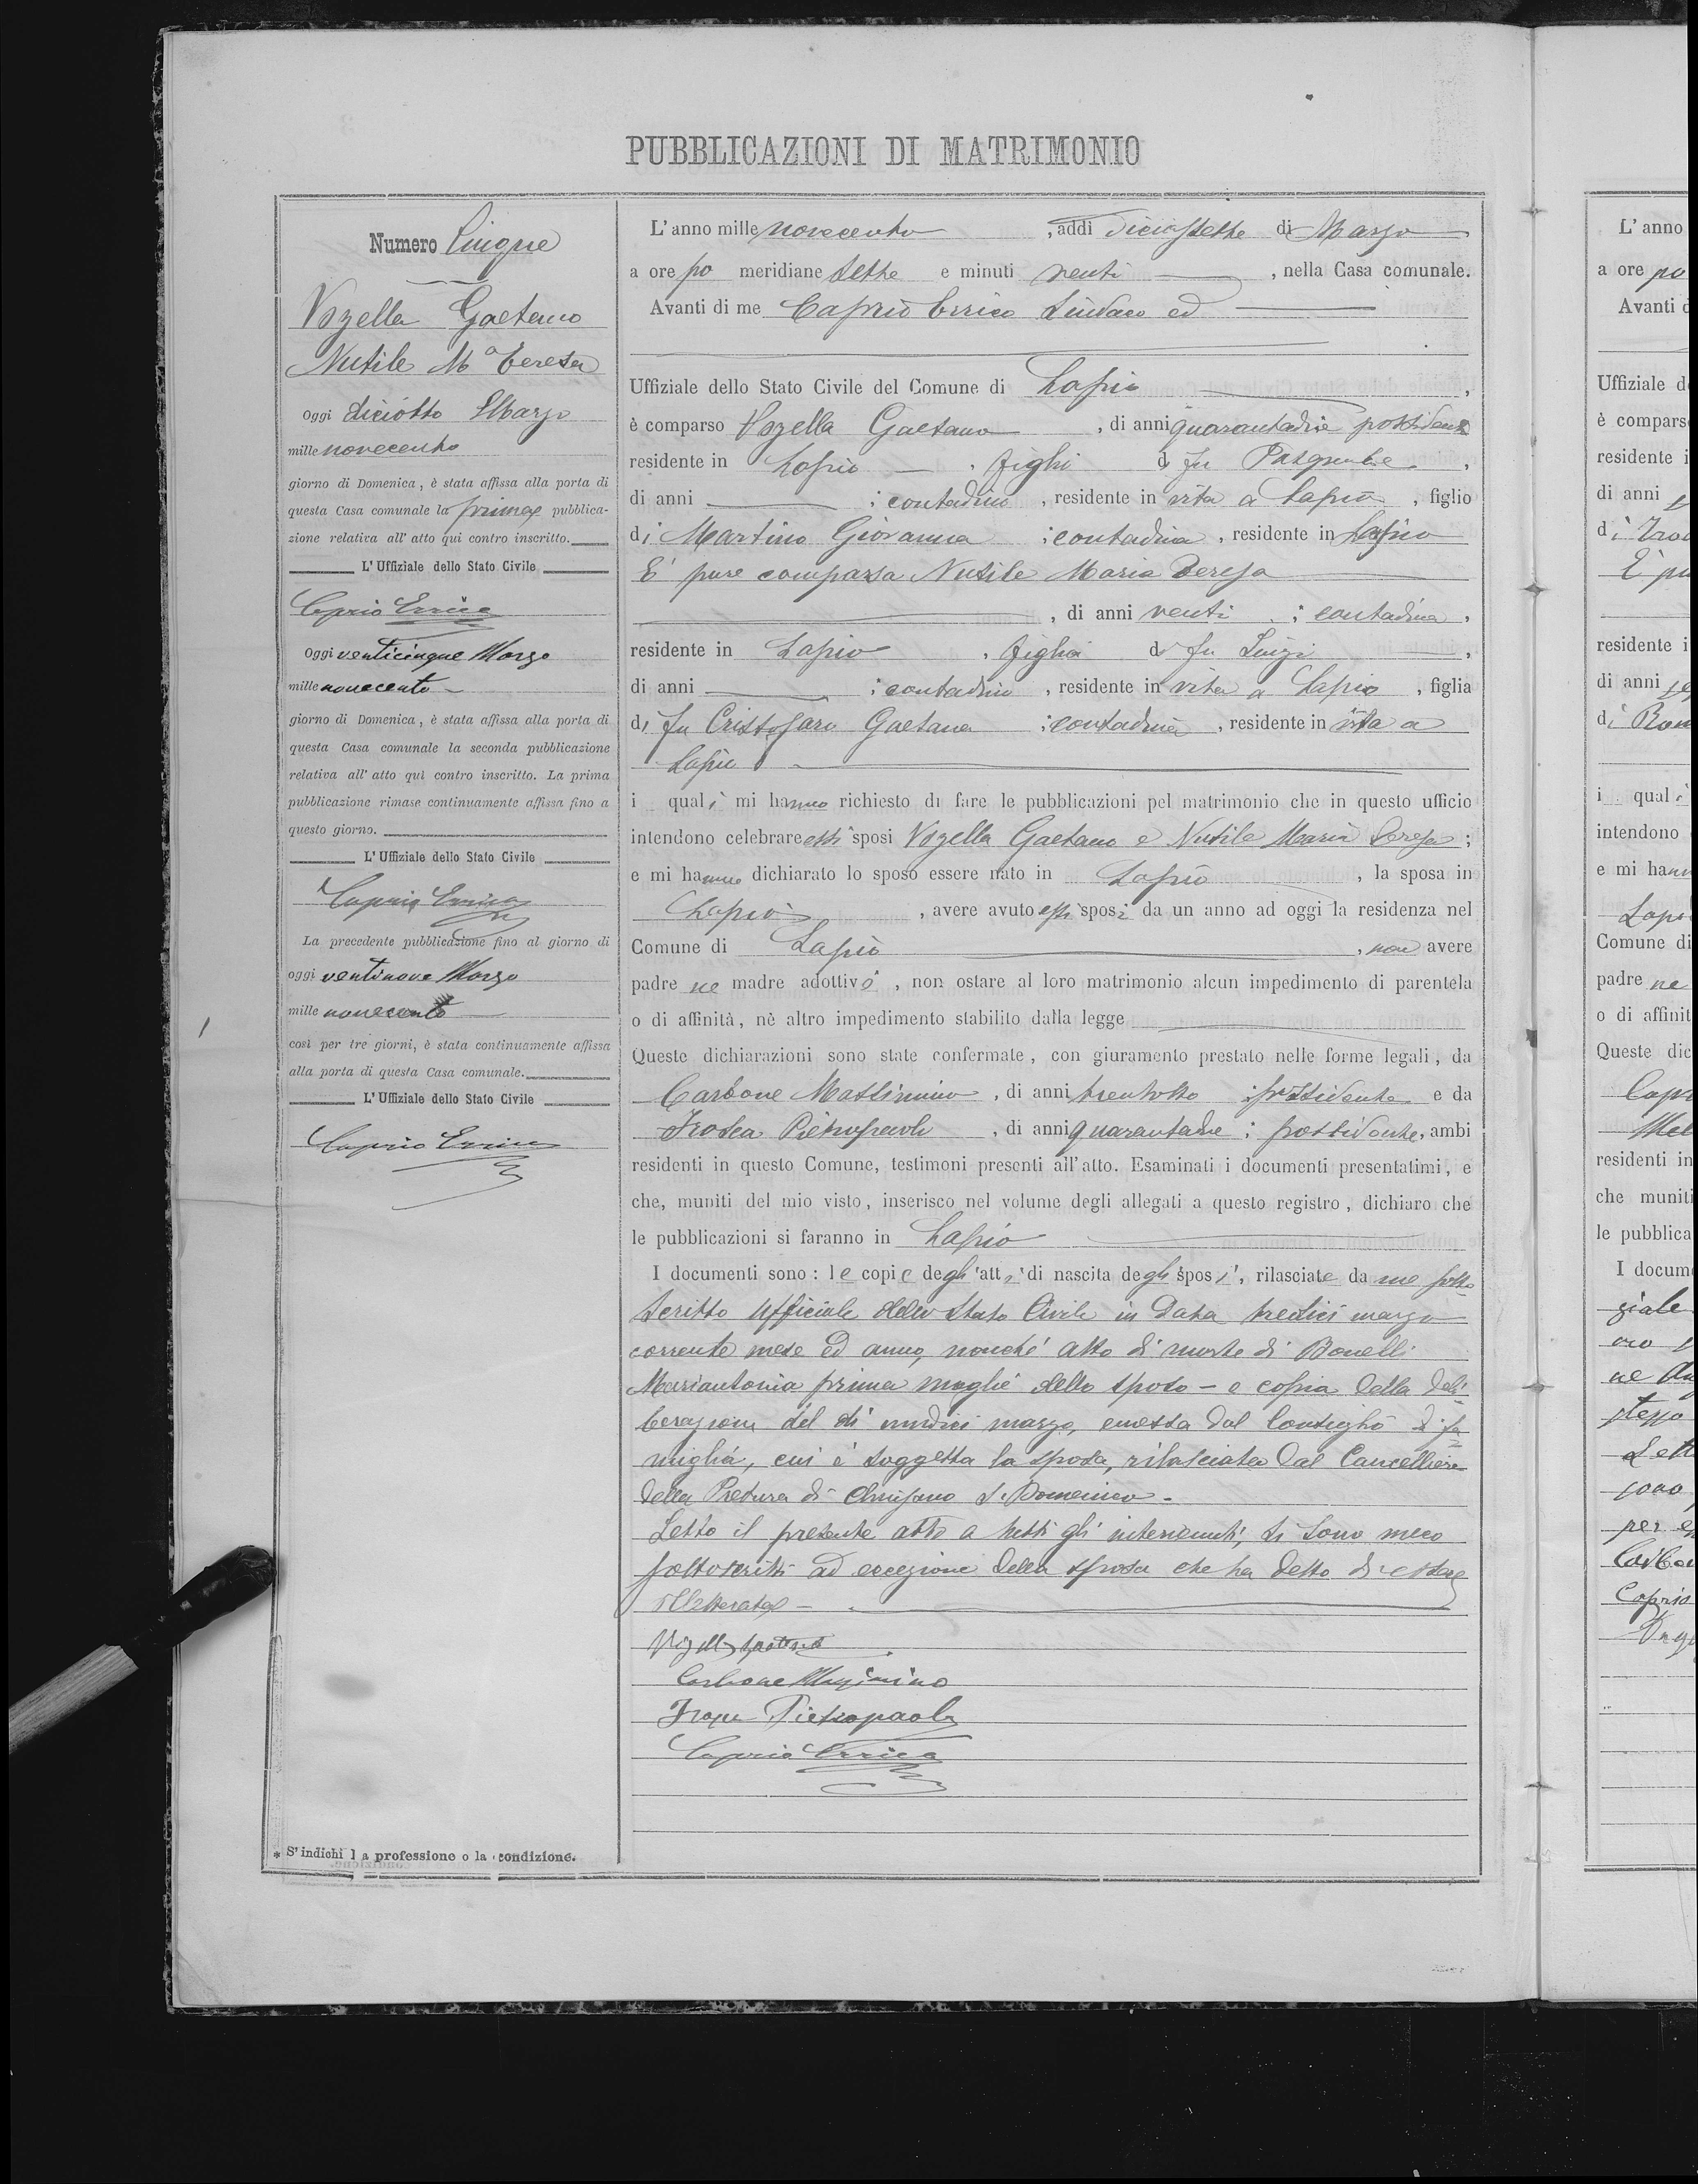 PUBBLICAZIONI DI MATRIMONIO
Numero Cinque
Vozella Gaetano
Nutile Mª Teresa
Oggi diciotto Marzo
mille novecento
giorno di Domenica, è stata affissa alla porta di
questa Casa comunale la prima pubblica-
zione relativa all' atto qui contro inscritto.
L' Uffiziale dello Stato Civile
Caprio Errico
Oggi venticinque Marzo
mille novecento
giorno di Domenica, è stata affissa alla porta di
questa Casa comunale la seconda pubblicazione
relativa all' atto quì contro inscritto. La prima
pubblicazione rimase continuamente affissa fino a
questo giorno.
L' Uffiziale dello Stato Civile
Caprio Errico
La precedente pubblicazione fino al giorno di
oggi ventinove Marzo
mille novecento
così per tre giorni, è stata continuamente affissa
alla porta di questa Casa comunale.
L' Uffiziale dello Stato Civile
Caprio Errico
* S' indichi la professione o la condizione.
L' anno mille novecento, addì diciassette di Marzo
a ore po meridiane sette e minuti venti, nella Casa comunale.
Avanti di me Caprio Errico Sindaco ed
Uffiziale dello Stato Civile del Comune di Lapio,
è comparso Vozella Gaetano, di anni quarantadue possidente
residente in Lapio, figlio di fu Pasquale,
di anni ; contadino, residente in vita a Lapio, figlio
di Martino Giovanna ; contadina, residente in Lapio
E' pure comparsa Nutile Maria Teresa
, di anni venti ; contadina,
residente in Lapio, figlia di fu Luigi,
di anni ; contadino, residente in vita a Lapio, figlia
di fu Cristofaro Gaetana ; contadina, residente in vita a
Lapio
i quali mi hanno richiesto di fare le pubblicazioni pel matrimonio che in questo ufficio
intendono celebrare essi sposi Vozella Gaetano e Nutile Maria Teresa ;
e mi hanno dichiarato lo sposo essere nato in Lapio, la sposa in
Lapio, avere avuto essi sposi da un anno ad oggi la residenza nel
Comune di Lapio, non avere
padre ne madre adottivo, non ostare al loro matrimonio alcun impedimento di parentela
o di affinità, nè altro impedimento stabilito dalla legge
Queste dichiarazioni sono state confermate, con giuramento prestato nelle forme legali, da
Carbone Massimino, di anni trentotto ; possidente e da
Trosea Pietropaolo, di anni quarantadue ; possidente, ambi
residenti in questo Comune, testimoni presenti all' atto. Esaminati i documenti presentatimi, e
che, muniti del mio visto, inserisco nel volume degli allegati a questo registro, dichiaro che
le pubblicazioni si faranno in Lapio
I documenti sono : le copie degli atti di nascita degli sposi, rilasciate da me sotto
scritto Ufficiale dello Stato Civile in data tredici marzo
corrente mese ed anno, nonché atto di morte di Bonelli
Mariantonia prima moglie dello sposo - e copia della deli
berazione del dì undici marzo, emessa dal Consiglio di fa
miglia, cui è soggetta la sposa, rilasciata dal Cancelliere
della Pretura di Chiusano S. Domenico -
Letto il presente atto a tutti gli intervenuti, si sono meco
sottoscritti ad eccezione della sposa che ha detto di essere
illetterata -
Vozella Gaetano
Carbone Massimino
Pietropaolo
Caprio Errico
L' anno
a ore po
Avanti
Uffiziale d
è compars
residente i
di anni
di
È pu
residente i
di anni
di
i quali
intendono
e mi hann
Comune di
padre ne
o di affinit
Queste dic
residenti in
che muniti
le pubblica
I docum